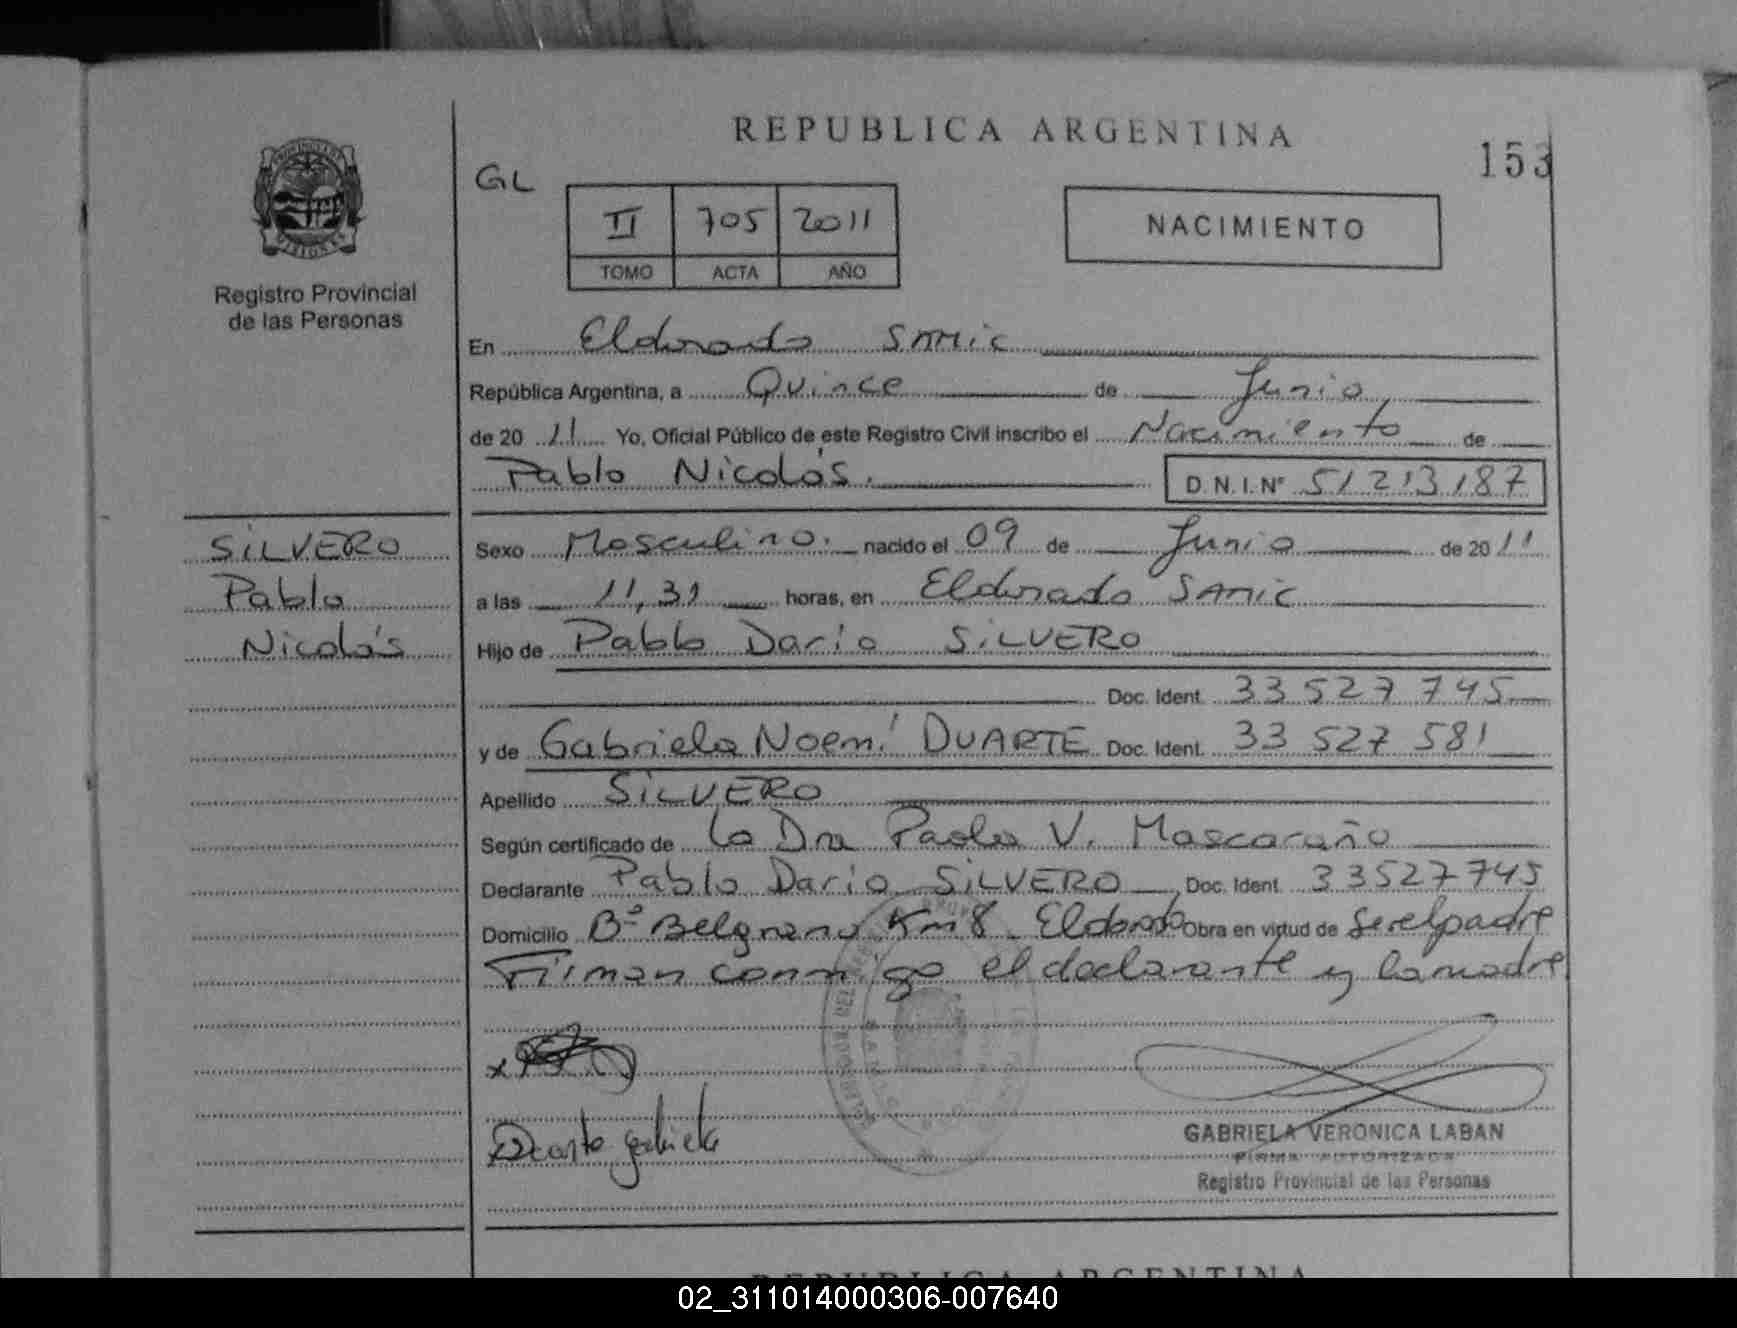 REPUBLICA ARGENTINA
153
GL
II 705 2011
TOMO ACTA AÑO
NACIMIENTO
Registro Provincial
de las Personas
En Eldorado SAMiC
República Argentina, a Quince de Junio
de 20 11 Yo, Oficial Público de este Registro Civil inscribo el Nacimiento de
Pablo Nicolás. D.N.I.Nº 51213187
SiLVERO
Pablo
Nicolás
Sexo Masculino. nacido el 09 de Junio de 20 11
a las 11,31 horas, en Eldorado SAMiC
Hijo de Pablo Darío SiLVERO
Doc. Ident. 33 527 745
y de Gabriela Noemí DUARTE Doc. Ident. 33 527 581
Apellido SiLVERO
Según certificado de la Dra Paola V. Mascaraño
Declarante Pablo Darío SiLVERO Doc. Ident. 33527745
Domicilio Bº Belgrano Km 8 Eldorado Obra en virtud de Ser el padre
Firman conmigo el declarante y la madre
Duarte gabriela
GABRIELA VERONICA LABAN
FIRMA AUTORIZADA
Registro Provincial de las Personas
REPUBLICA ARGENTINA
02_311014000306-007640